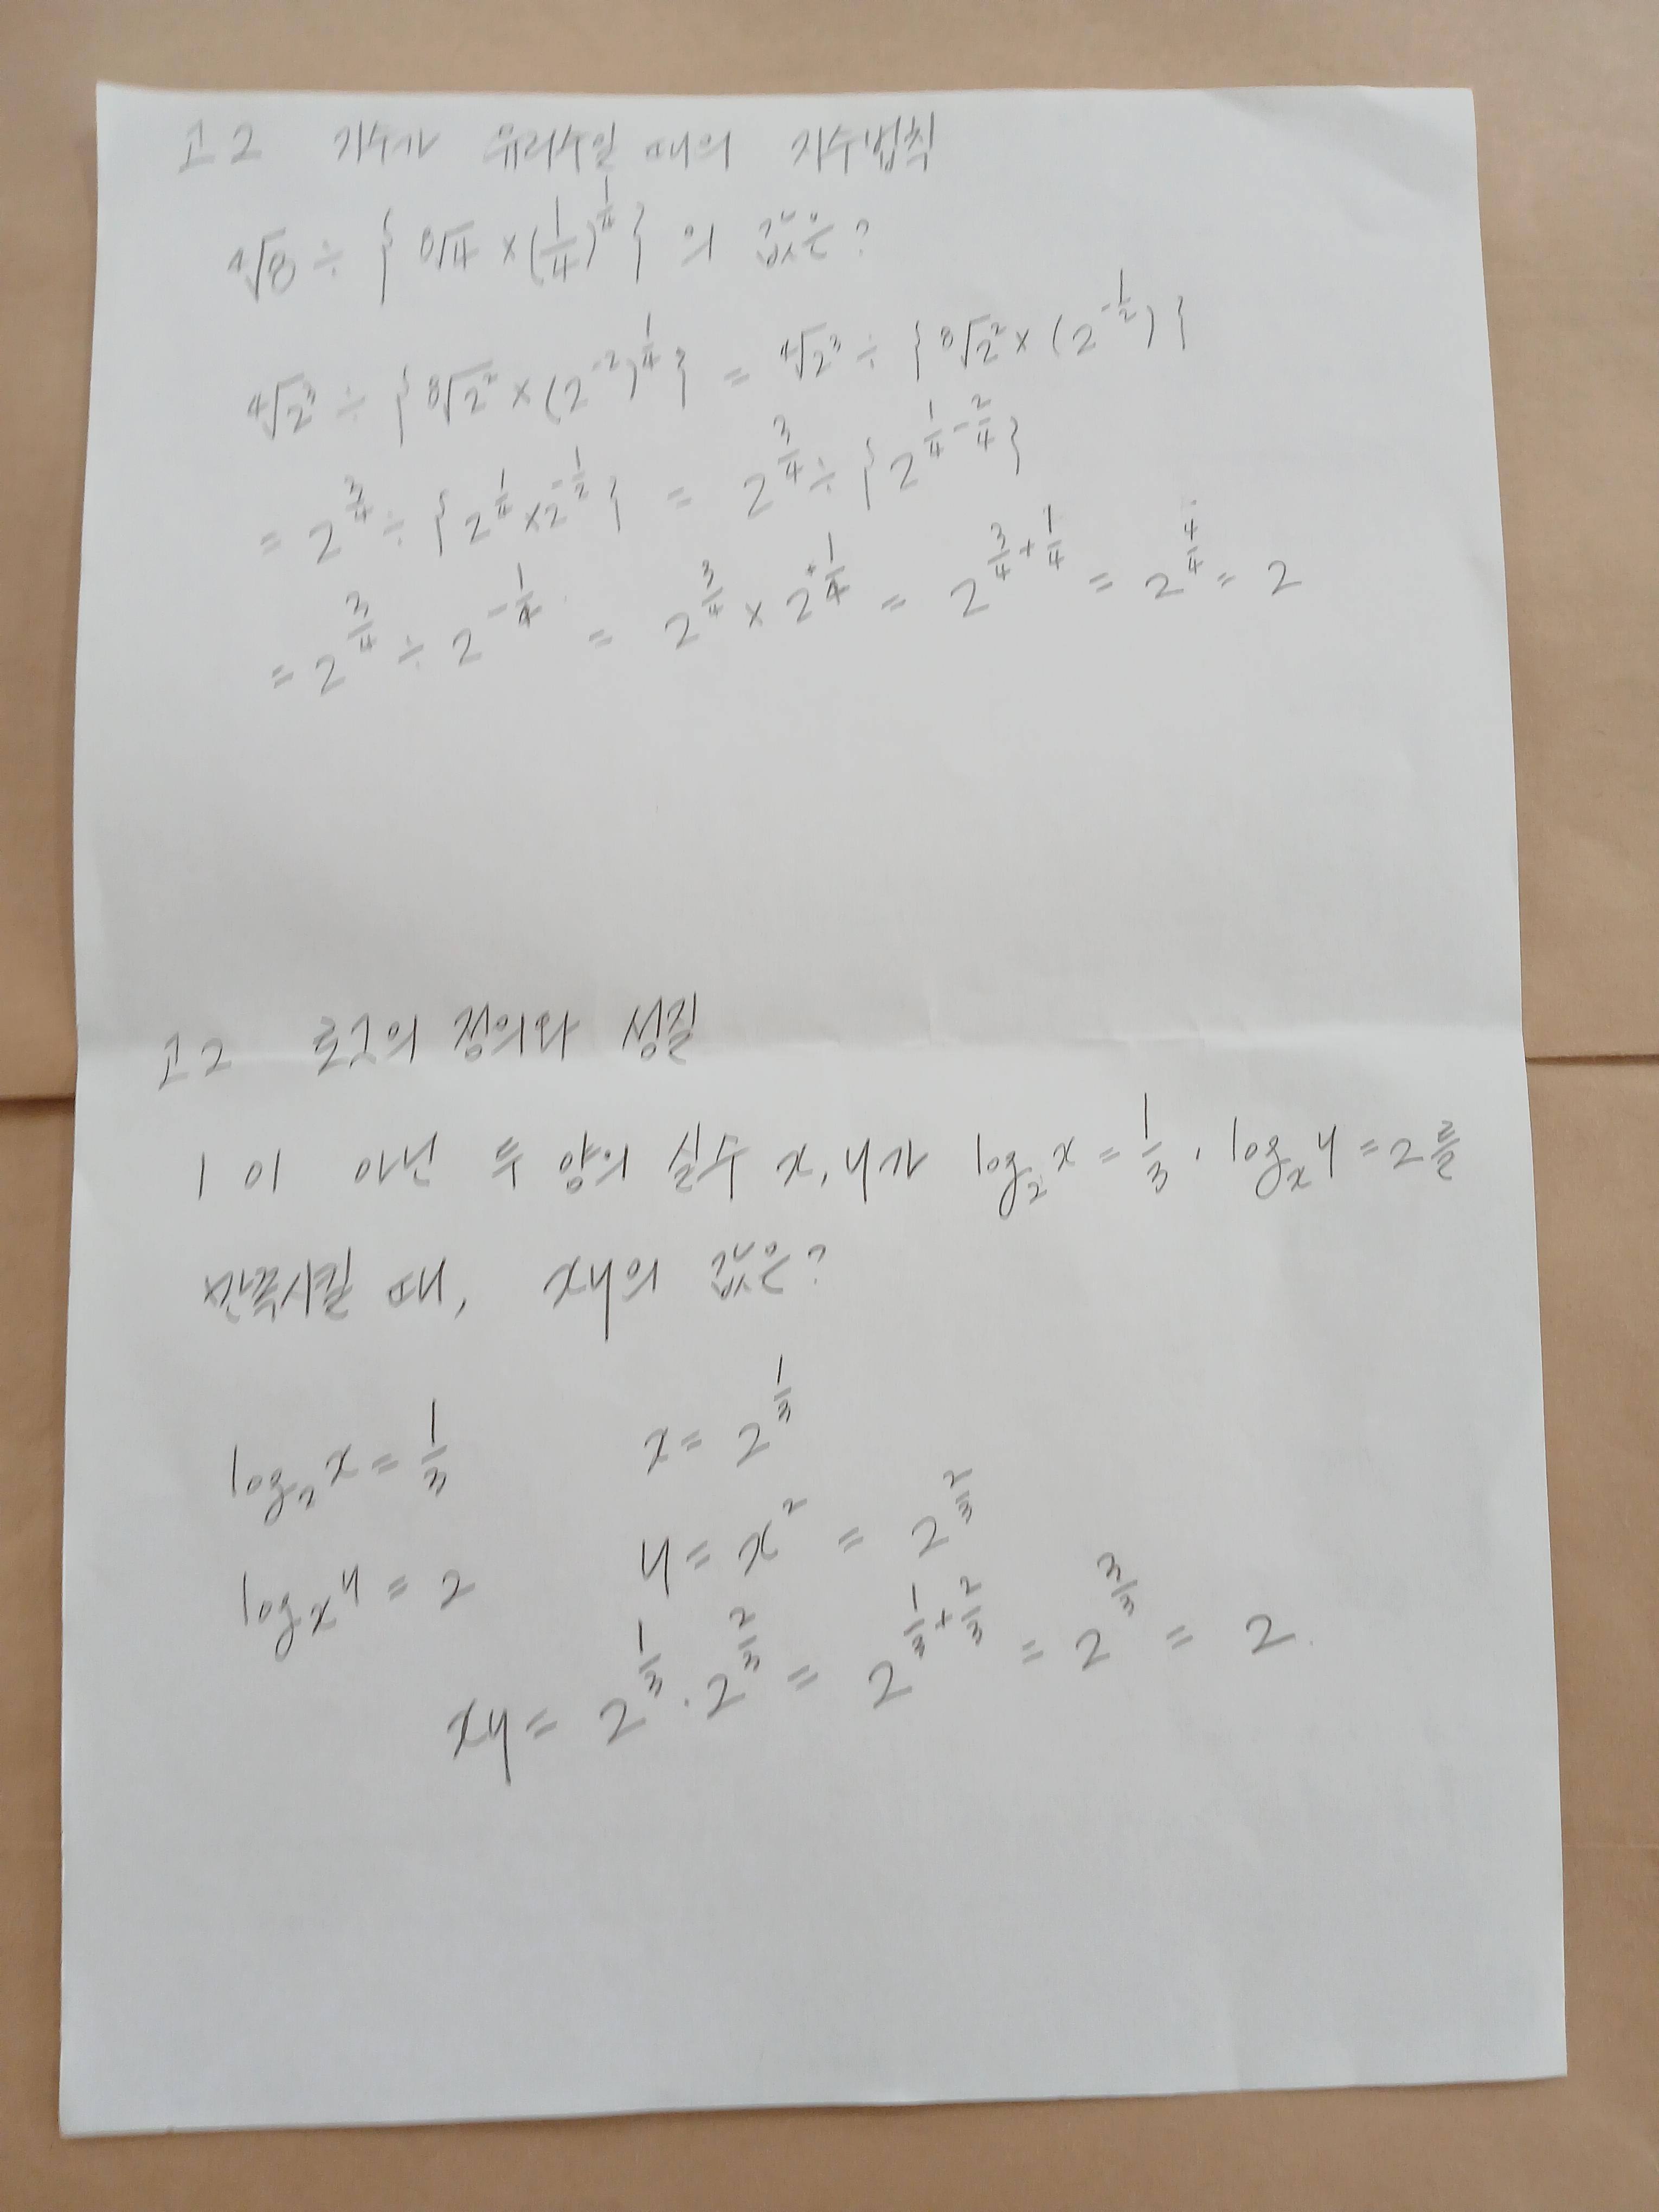 고2 지수가 유리수일 때의 지수법칙
⁴√8 ÷ { ⁸√4 × (1/4)^(1/4) } 의 값은?
⁴√2³ ÷ { ⁸√2² × (2⁻²)^(1/4) } = ⁴√2³ ÷ { ⁸√2² × (2^(-1/2)) }
= 2^(3/4) ÷ { 2^(1/4) × 2^(-1/2) } = 2^(3/4) ÷ { 2^(1/4 - 2/4) }
= 2^(3/4) ÷ 2^(-1/4) = 2^(3/4) × 2^(+1/4) = 2^(3/4 + 1/4) = 2^(4/4) = 2
고2 로그의 정의와 성질
1이 아닌 두 양의 실수 x, y가 log₂x = 1/3, logₓy = 2를
만족시킬 때, xy의 값은?
log₂x = 1/3 x = 2^(1/3)
logₓy = 2 y = x² = 2^(2/3)
xy = 2^(1/3) · 2^(2/3) = 2^(1/3 + 2/3) = 2^(3/3) = 2.